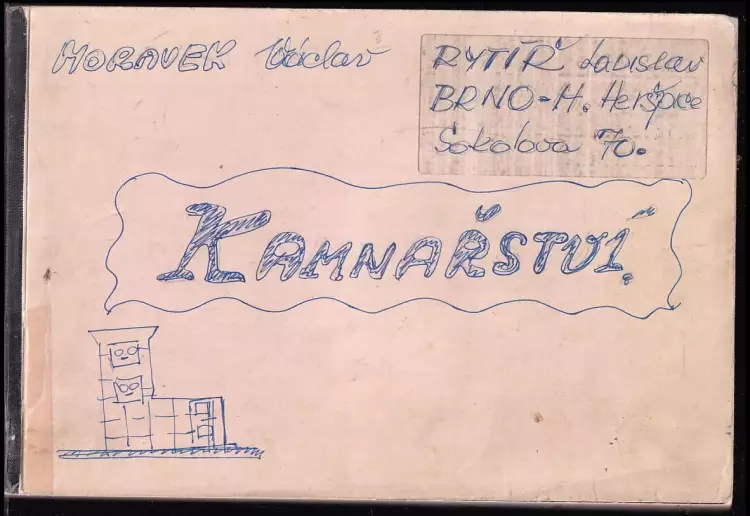 MORAVEK Václav
RYTÍŘ Ladislav
BRNO-H. Heršpice
Sokolova 70.
KAMNAŘSTVÍ.